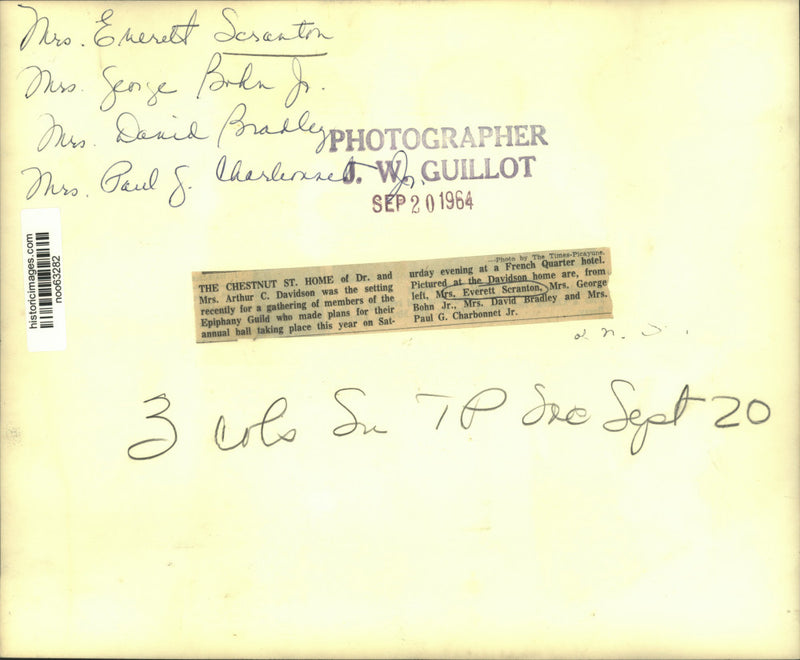 Mrs. Everett Scranton
Mrs. George Bohn Jr.
Mrs. David Bradley
Mrs. Paul G. Charbonnet Jr.
PHOTOGRAPHER
J. W. GUILLOT
SEP 20 1964
historicimages.com
noo63282
THE CHESTNUT ST. HOME of Dr. and
Mrs. Arthur C. Davidson was the setting
recently for a gathering of members of the
Epiphany Guild who made plans for their
annual ball taking place this year on Sat-
—Photo by The Times-Picayune.
urday evening at a French Quarter hotel.
Pictured at the Davidson home are, from
left, Mrs. Everett Scranton, Mrs. George
Bohn Jr., Mrs. David Bradley and Mrs.
Paul G. Charbonnet Jr.
3 cols Su TP Soc Sept 20